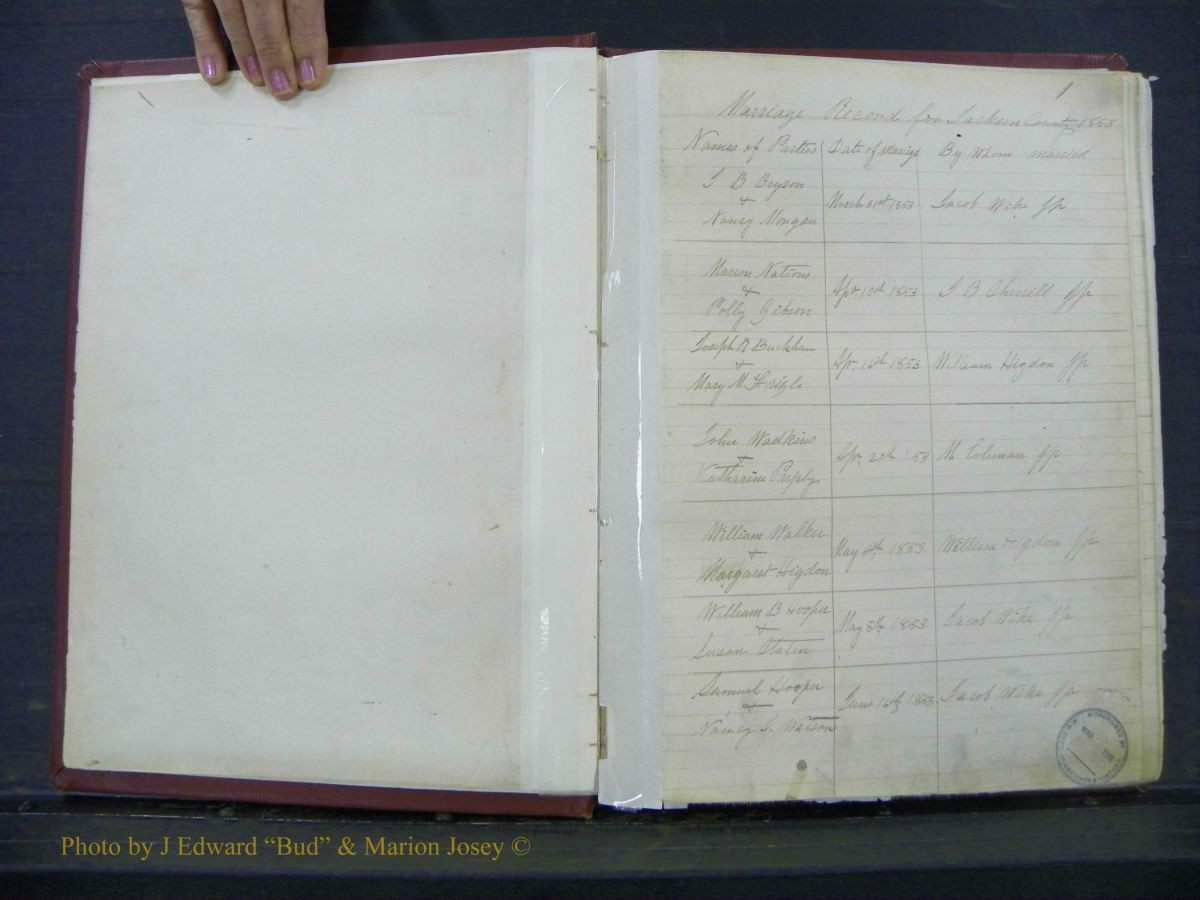 1
Marriage Record for Jackson County 1853
Names of Parties Date of Marriage By Whom married
J B Bryson
&
Nancy Morgan
March 31st 1853 Jacob Wike JP
Marion Nations
&
Polly Gibson
Apr. 10th 1853
JP
Joseph R
&
Mary M
Apr. 16th 1853 William Higdon JP
John Wadkins
&
Katharine
Apr. 20th '53 M Coleman JP
William Walker
&
Margaret Higdon
May 4th 1853 William Higdon JP
William B Hooper
&
Susan
May 5th 1853 Jacob Wike JP
Samuel Hooper
&
Nancy J. Watson
June 16th 1853 Jacob Wike JP
Photo by J Edward “Bud” & Marion Josey ©